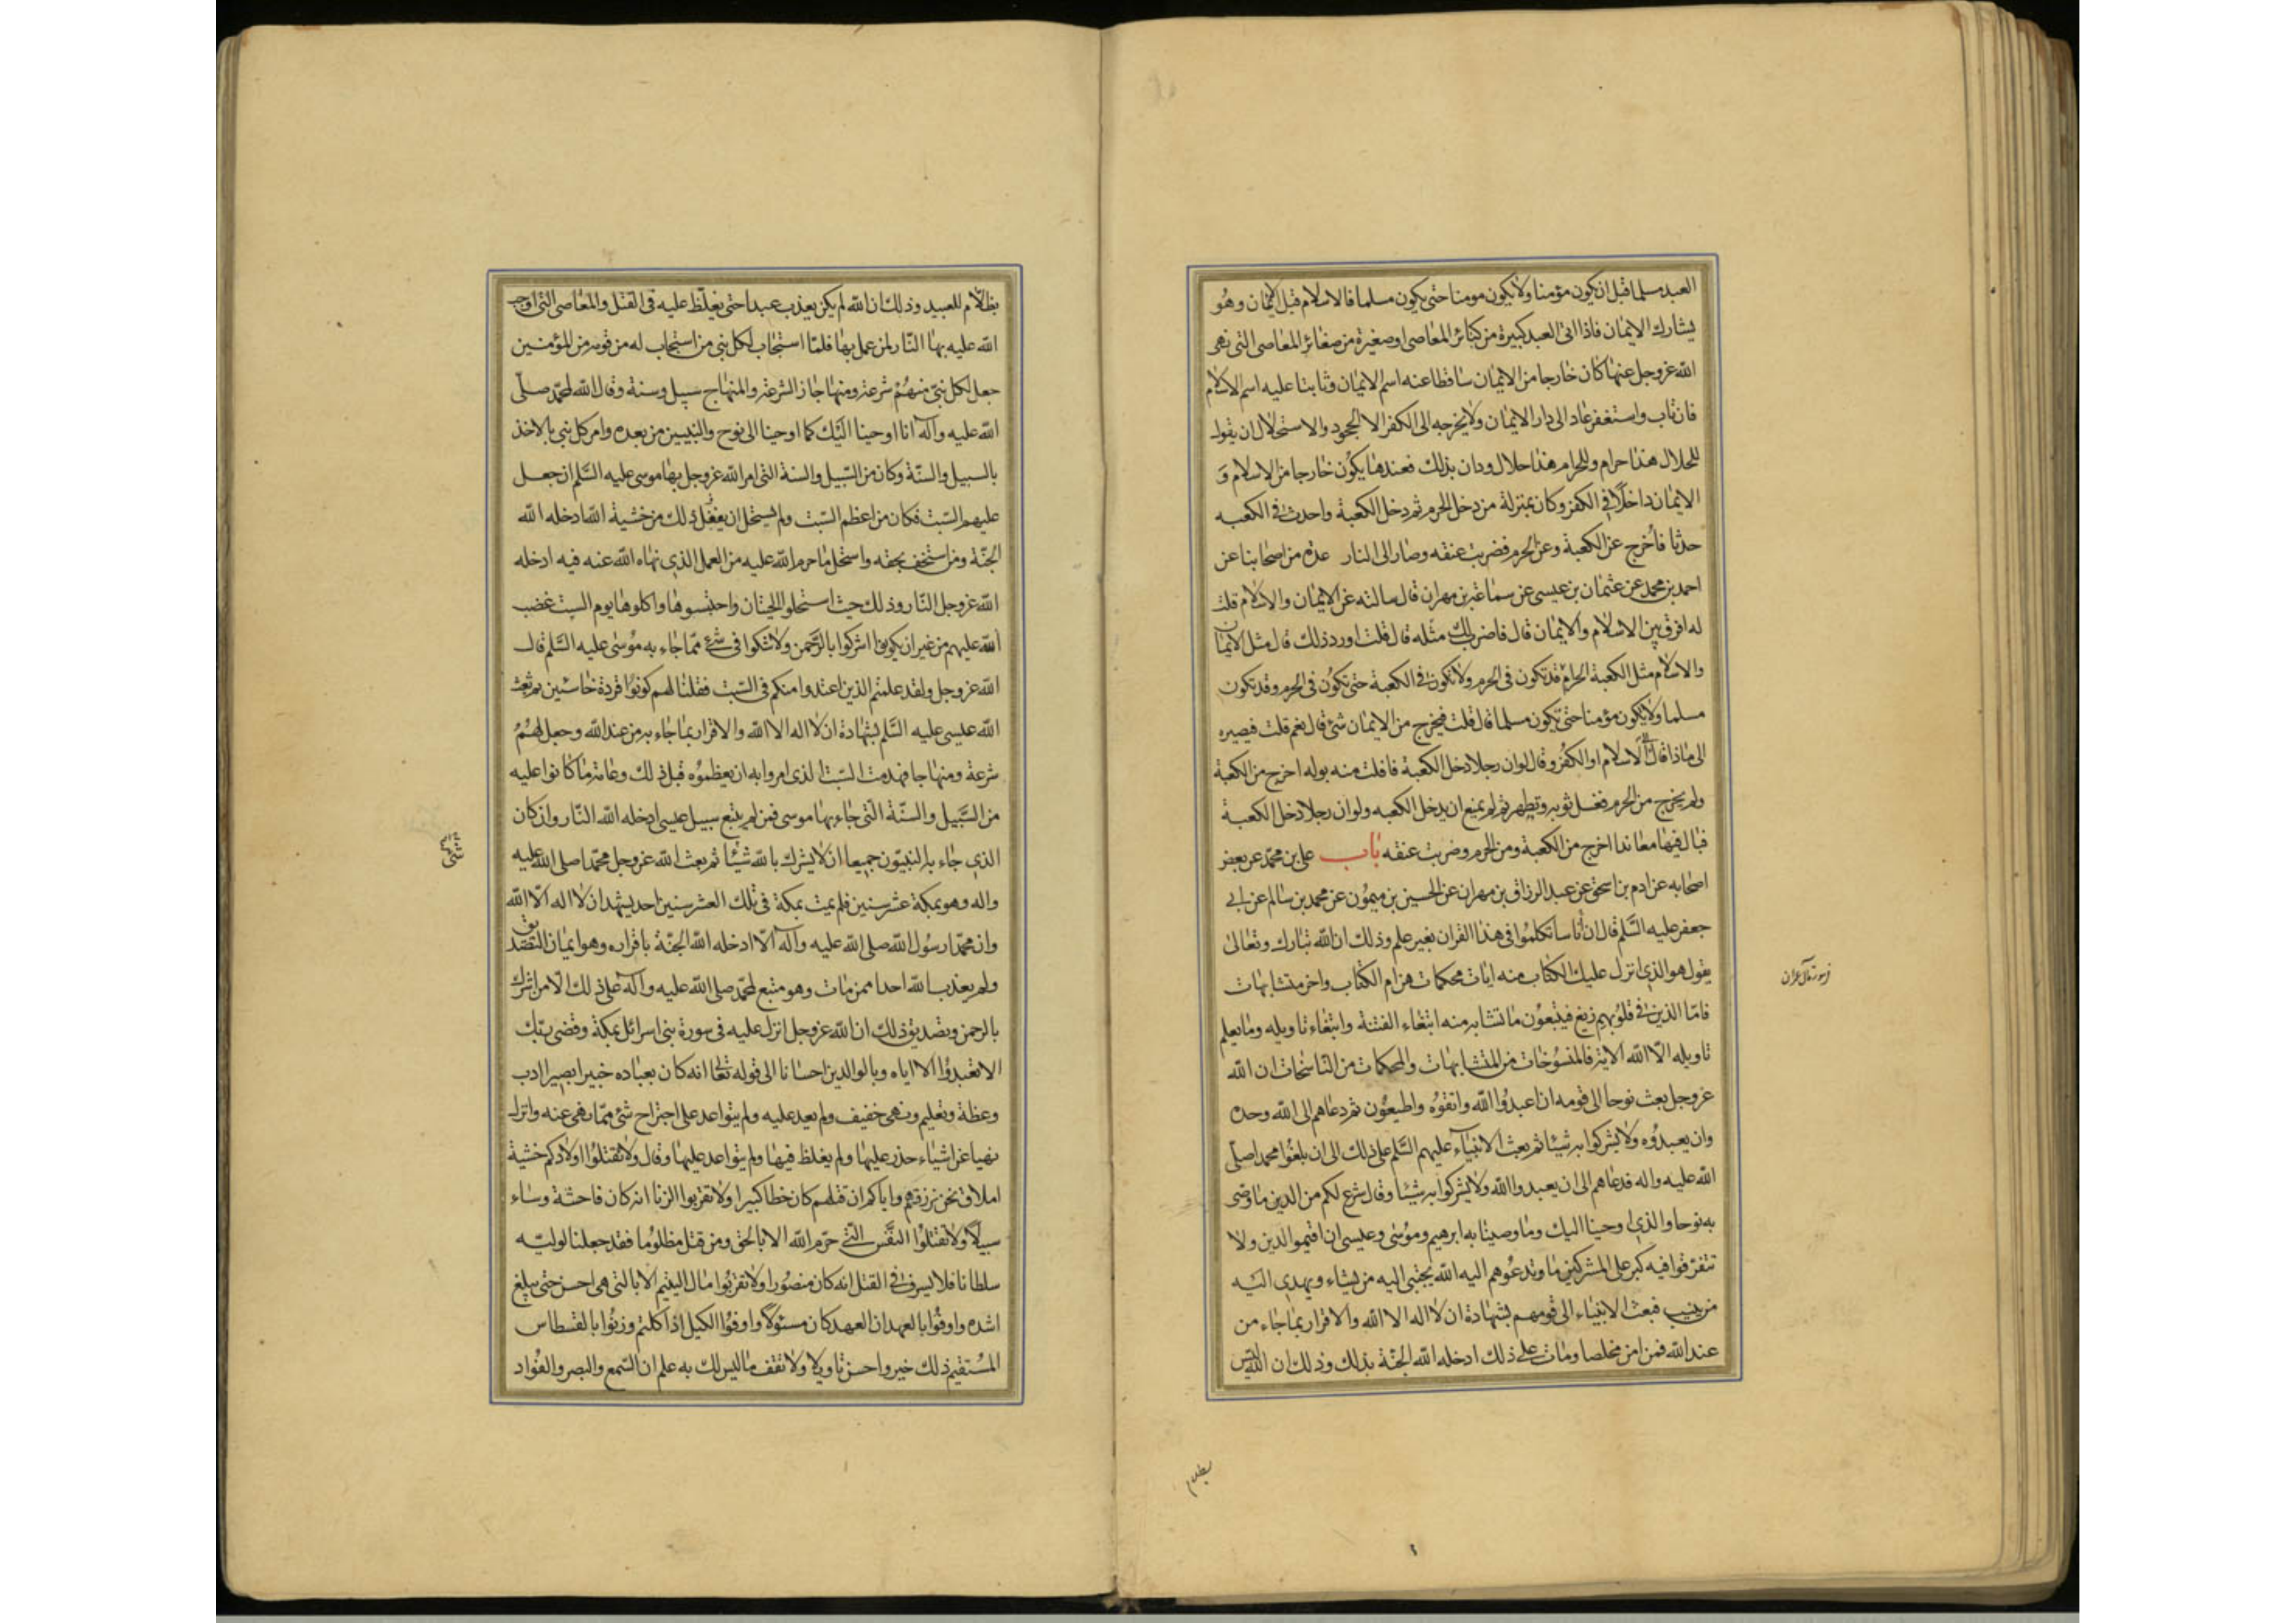 العبد مسلما قبل ان يكون مؤمنا ولا يكون مومنا حتى يكون مسلما فالاسلام قبل الايمان وهو
يشارك الايمان فاذا اتى العبد كبيرة من كبائر المعاصى او صغيرة من صغائر المعاصى التى نهى
الله عزوجل عنها كان خارجا من الايمان ساقطا عنه اسم الايمان وثابتا عليه اسم الاسلام
فان تاب واستغفر عاد الى دار الايمان ولا يخرجه الى الكفر الا الجحود والاستحلال ان يقول
للحلال هذا حرام وللحرام هذا حلال ودان بذلك فعندها يكون خارجا من الاسلام و
الايمان داخلا فى الكفر وكان بمنزلة من دخل الحرم ثم دخل الكعبة واحدث فى الكعبه
حدثا فأخرج عن الكعبة وعن الحرم فضربت عنقه وصار الى النار عدة من اصحابنا عن
احمد بن محمد عن عثمان بن عيسى عن سماعة بن مهران قال سالته عن الايمان والاسلام قلت
له افرق بين الاسلام والايمان قال فاضرب لك مثله قال قلت اورد ذلك قال مثل الايمان
والاسلام مثل الكعبة الحرام قد تكون فى الحرم ولا تكون فى الكعبة حتى تكون فى الحرم وقد تكون
مسلما ولا يكون مؤمنا حتى تكون مسلما قال قلت فيخرج من الايمان شئ قال نعم قلت فيصيره
الى ماذا قال الى الاسلام او الكفر وقال لو ان رجلا دخل الكعبة فافلت منه بوله اخرج من الكعبة
ولم يخرج من الحرم فغسل ثوبه وتطهر ثم لم يمنع ان يدخل الكعبه ولو ان رجلا دخل الكعبة
فبال فيها معاندا اخرج من الكعبة ومن الحرم وضربت عنقه باب على بن محمد عن بعض
اصحابه عن ادم بن اسحق عن عبد الرزاق بن مهران عن الحسين بن ميمون عن محمد بن سالم عن ابى
جعفر عليه السلم قال ان أناسا تكلموا فى هذا القران بغير علم وذلك ان الله تبارك وتعالى
يقول هو الذى انزل عليك الكتاب منه ايات محكمات هن ام الكتاب واخر متشابهات
فامّا الذين فى قلوبهم زيغ فيتبعون ما تشابه منه ابتغاء الفتنة وابتغاء تاويله وما يعلم
تاويله الّا الله الاية فالمنسوخات من المتشابهات والمحكمات من الناسخات ان الله
عزوجل بعث نوحا الى قومه ان اعبدوا الله واتقوه واطيعون ثم دعاهم الى الله وحده
وان يعبدوه ولا يشركوا به شيئا ثم بعث الانبياء عليهم السّلم على ذلك الى ان بلغوا محمدا صلّى
الله عليه واله فدعاهم الى ان يعبدوا الله ولا يشركوا به شيئا وقال شرع لكم من الدين ما وصى
به نوحا والذى اوحينا اليك وما وصينا به ابرهيم وموسى وعيسى ان اقيموا الدين ولا
تتفرّقوا فيه كبر على المشركين ما تدعوهم اليه الله يجتبى اليه من يشاء ويهدى اليه
من ينيب فبعث الانبياء الى قومهم بشهادة ان لا اله الا الله والاقرار بما جاء من
عند الله فمن امن مخلصا ومات على ذلك ادخله الله الجنّة بذلك وذلك ان الله ليس
من سورة آل عمران
بظلام
بظلّام للعبيد وذلك ان الله لم يكن يعذب عبدا حتى يغلّظ عليه فى القتل والمعاصى التى اوجب
الله عليه بها النّار لمن عمل بها فلمّا استجاب لكل نبى من استجاب له من قومه من المؤمنين
جعل لكل نبىّ منهم شرعة ومنهاجا والشرعة والمنهاج سبيل وسنة وقال الله لمحمّد صلّى
الله عليه وآله انا اوحينا اليك كما اوحينا الى نوح والنبيين من بعده وامر كل نبى بالاخذ
بالسبيل والسنّة وكان من السّبيل والسنة التى امر الله عزوجل بها موسى عليه السّلم ان جعل
عليهم السّبت فكان من اعظم السّبت ولم يستحل ان يفعل ذلك من خشية الله ادخله الله
الجنّة ومن استخف بحقه واستحل ما حرم الله عليه من العمل الذى نهاه الله عنه فيه ادخله
الله عزوجل النّار وذلك حيث استحلوا الحيتان واحتبسوها واكلوها يوم السبت غضب
الله عليهم من غير ان يكونوا اشركوا بالرّحمن ولا شكوا فى شئ ممّا جاء به موسى عليه السّلم قال
الله عزوجل ولقد علمتم الذين اعتدوا منكم فى السّبت فقلنا لهم كونوا قردة خاسئين ثم بعث
الله عيسى عليه السّلم بشهادة ان لا اله الا الله والاقرار بما جاء به من عند الله وجعل لهم
شرعة ومنهاجا فهدمت السّبت الذى امروا به ان يعظموه قبل ذلك وعامّة ما كانوا عليه
من السّبيل والسنّة الّتى جاء بها موسى فمن لم يتبع سبيل عيسى ادخله الله النّار وان كان
الذى جاء به النبيّون جميعا ان لا يشرك بالله شيئا ثم بعث الله عزوجل محمّدا صلى الله عليه
واله وهو بمكة عشر سنين فلم يمت بمكة فى تلك العشر سنين احد يشهد ان لا اله الّا الله
وان محمّدا رسول الله صلى الله عليه وآله الّا ادخله الله الجنّة باقراره وهو ايمان التصديق
ولم يعذب الله احدا ممن مات وهو متبع لمحمّد صلى الله عليه وآله على ذلك الا من اشرك
بالرحمن وتصديق ذلك ان الله عزوجل انزل عليه فى سورة بنى اسرائل بمكة وقضى ربّك
الا تعبدوا الا اياه وبالوالدين احسانا الى قوله تعالى انه كان بعباده خبيرا بصيرا ادب
وعظة وتعليم ونهى خفيف ولم يعد عليه ولم يتواعد على اجتراح شئ ممّا نهى عنه وانزل
نهيا عن اشياء حذر عليها ولم يغلظ فيها ولم يتواعد عليها وقال ولا تقتلوا اولادكم خشية
املاق نحن نرزقهم واياكم ان قتلهم كان خطا كبيرا ولا تقربوا الزنا انه كان فاحشة وساء
سبيلا ولا تقتلوا النفس التى حرّم الله الا بالحق ومن قتل مظلوما فقد جعلنا لوليّه
سلطانا فلا يسرف فى القتل انه كان منصورا ولا تقربوا مال اليتيم الا بالتى هى احسن حتى يبلغ
اشده واوفوا بالعهد ان العهد كان مسئولا واوفوا الكيل اذا كلتم وزنوا بالقسطاس
المستقيم ذلك خير واحسن تاويلا ولا تقف ما ليس لك به علم ان السّمع والبصر والفواد